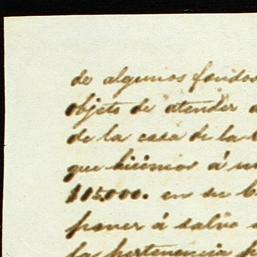 de algunos fondos
objeto de atender a
de la casa de la
que hicimos á
$15.000. en su
poner á salvo
la pertenencia